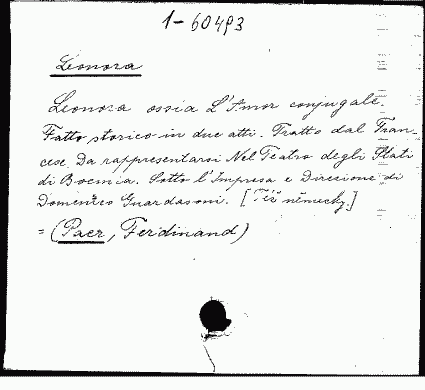 1-60493
Leonora
Leonora ossia L'Amor conjugale.
Fatto storico in due atti. Tratto dal Fran-
cese Da rappresentarsi Nel Teatro degli Stati
di Boemia. Sotto l'Impresa e Direzione di
Domenico Guardasoni. [Též německy.]
= (Paer, Ferdinand)